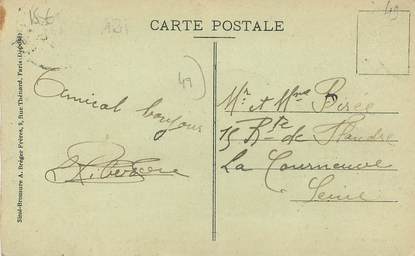 15€
49
CARTE POSTALE
49
Amical bonjour
Mr et Mme
15 Rte de Flandre
La Courneuve
Seine
Siné-Bromure A. Bréger Frères, 9, Rue Thénard, Paris (Déposé)